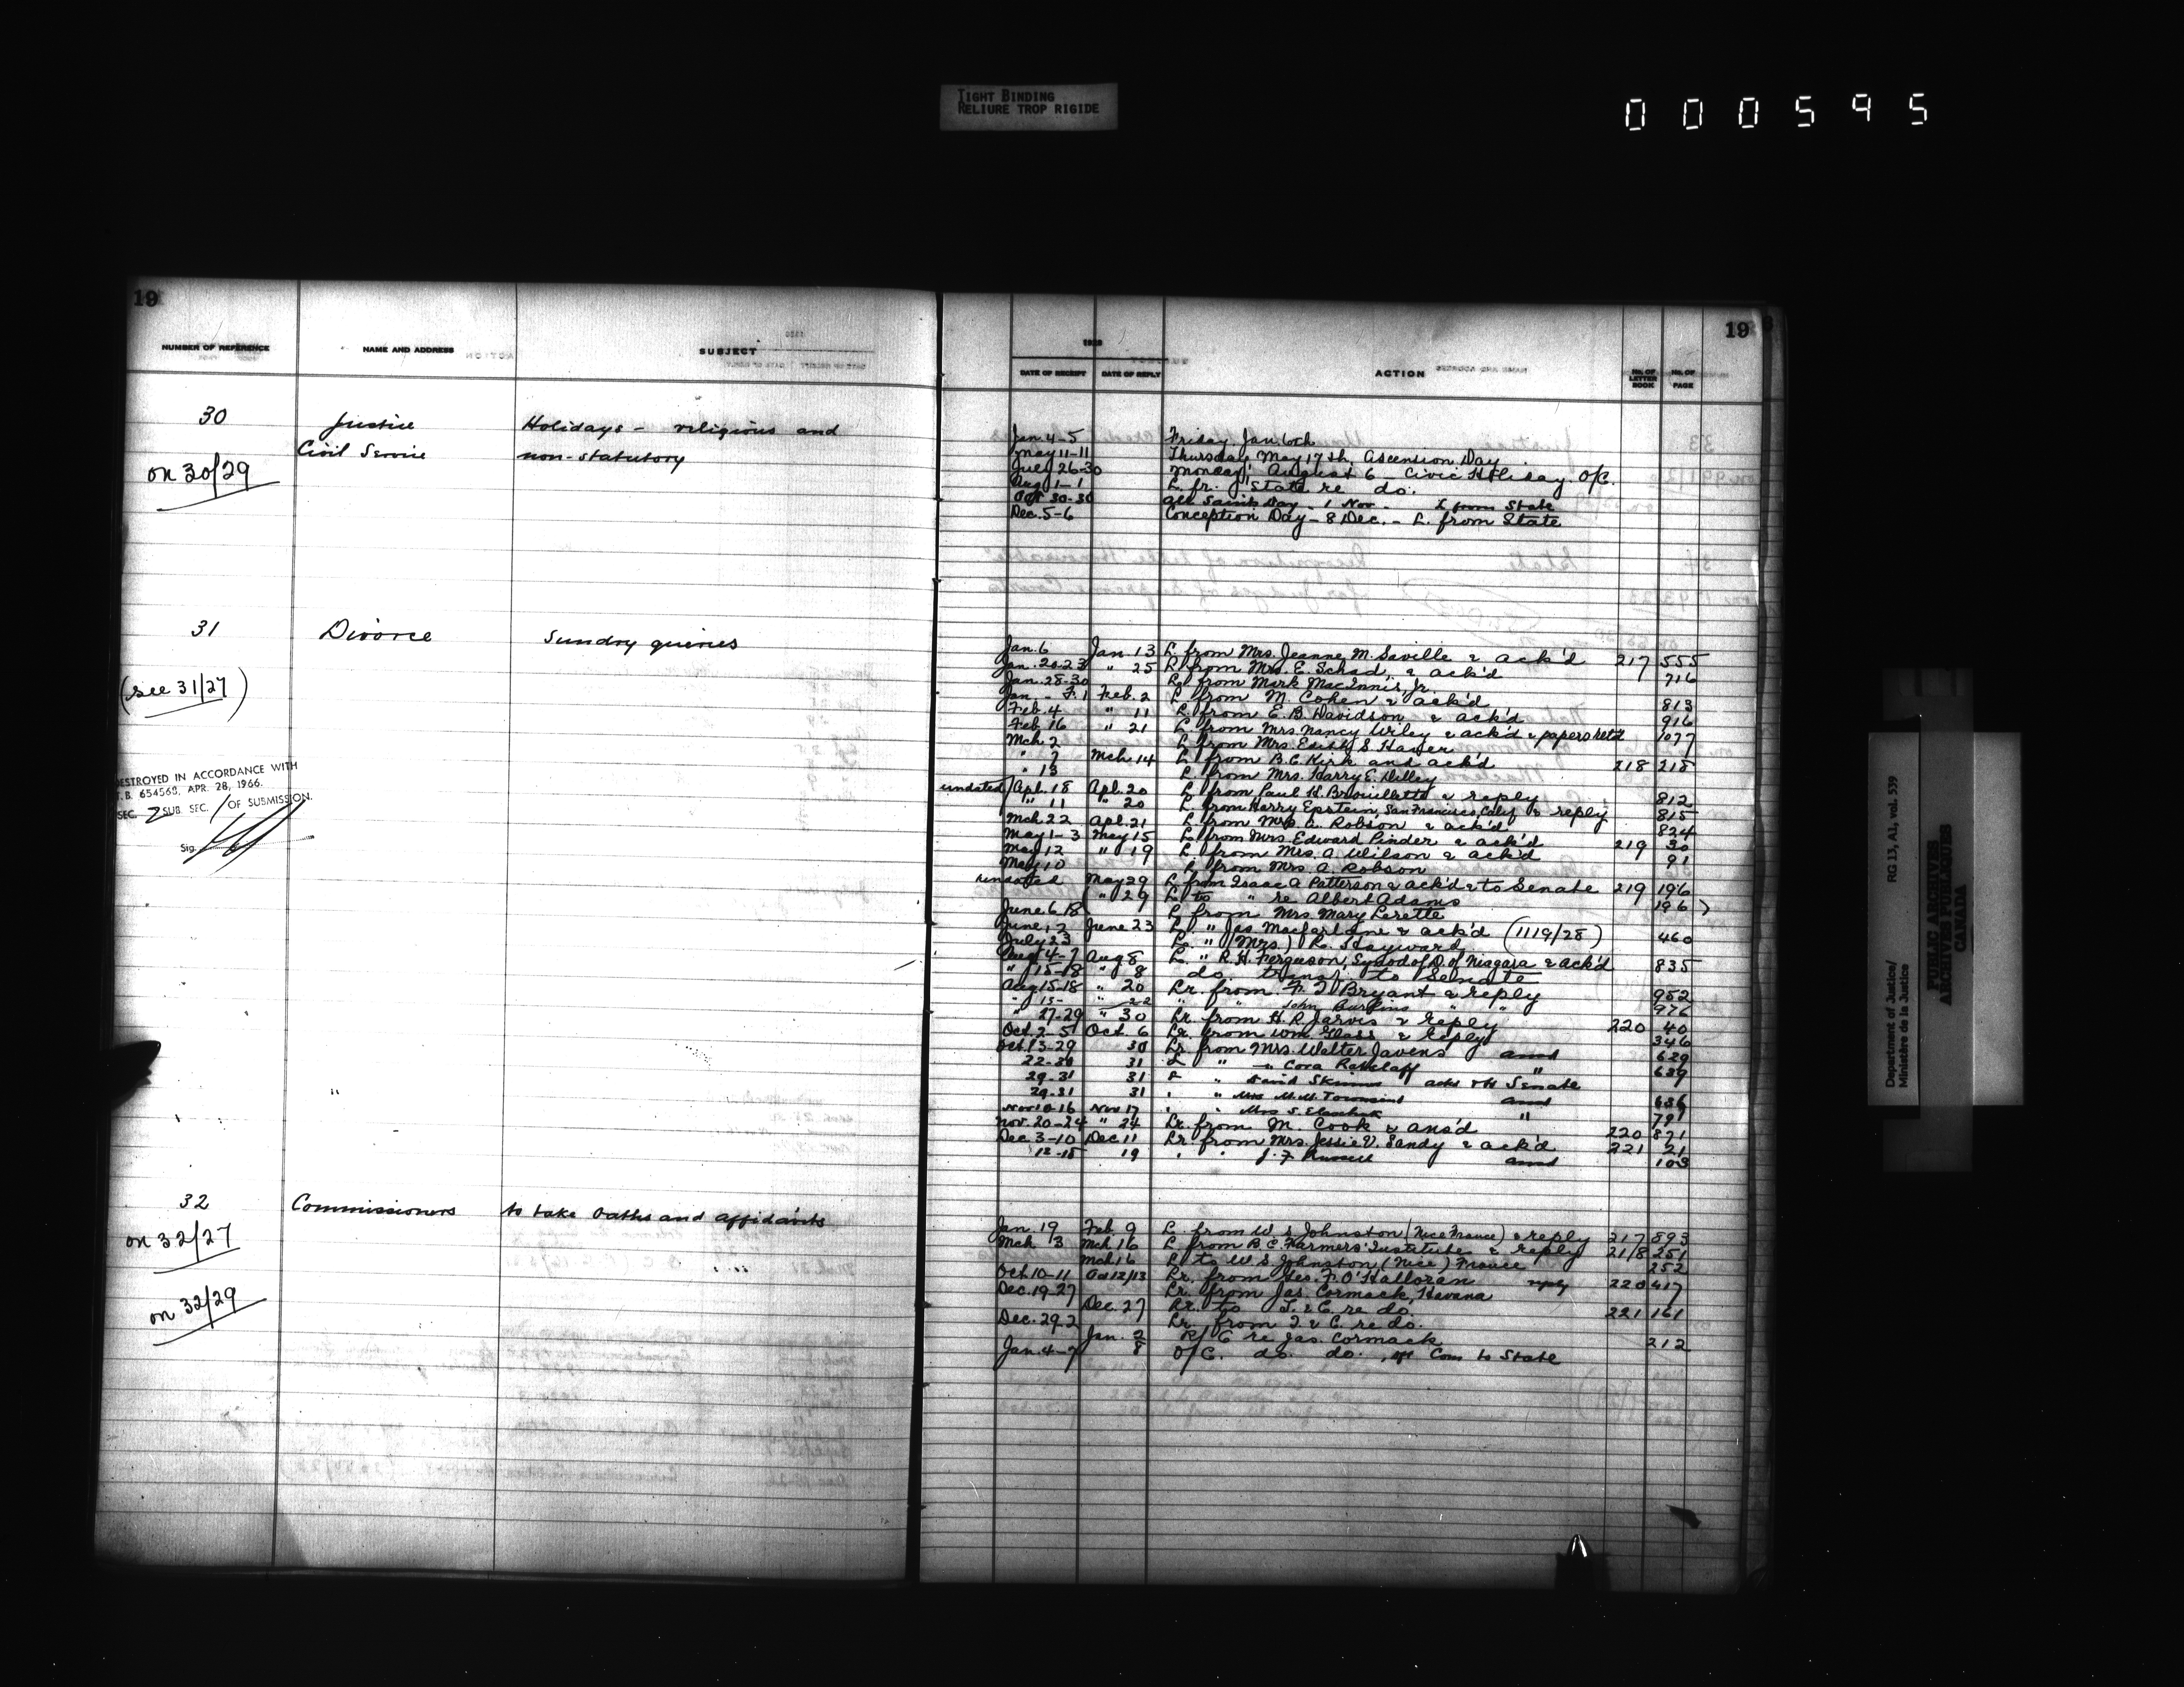 TIGHT BINDING
RELIURE TROP RIGIDE
000595
19
NUMBER OF REFERENCE NAME AND ADDRESS SUBJECT
30 Justice Holidays - religious and
Civil Service non-statutory
on 30/29
31 Divorce Sundry queries
(see 31/27)
DESTROYED IN ACCORDANCE WITH
T.B. 654563, APR. 28, 1966.
SEC. 7 SUB. SEC. 1 OF SUBMISSION.
Sig.
32 Commissioners to take oaths and affidavits
on 32/27
on 32/29
19
1928
DATE OF RECEIPT DATE OF REPLY ACTION NO. OF LETTER BOOK NO. OF PAGE
Jan. 4-5 Friday, Jan. 6th
May 11-11 Thursday May 17th, Ascension Day
July 26-30 Monday, August 6 Civic Holiday O/C.
Aug 1-1 L. fr. State re do.
Oct 30-30 All Saints Day - 1 Nov - L from State
Dec. 5-6 Conception Day - 8 Dec. - L. from State
Jan. 6 Jan 13 L. from Mrs. Jeanne M. Saville & ack'd 217 555
Jan. 20-23 " 25 L. from Mrs. E. Schad, & ack'd 716
Jan. 28-30 L. from Mark MacInnis, Jr.
Jan. - F. 1 Feb. 2 L. from M. Cohen & ack'd 813
Feb. 4 " 11 L. from E. B. Davidson & ack'd 916
Feb. 16 " 21 L. from Mrs. Nancy Wiley & ack'd & papers ret'd 1077
Mch 2 L. from Mrs. Edith S.
" 7 Mch. 14 L. from B. C. Kirk and ack'd 218 218
" 13 L. from Mrs. Harry E. Dilley
undated Apl. 18 Apl. 20 L. from Paul H. Brouillette & reply 812
" 11 " 20 L. from Harry Epstein, San Francisco, Calif & reply 815
Mch 22 Apl. 21 L. from Mrs. A. Robson & ack'd 824
May 1-3 May 15 L. from Mrs. Edward Pinder & ack'd 219 30
May 12 " 19 L. from Mrs. A. Wilson & ack'd 91
May 10 L. from Mrs. A. Robson
undated May 29 L. from Isaac A Patterson & ack'd & to Senate 219 196
" 29 L. to " re Albert Adams 196
June 6-18 L. from Mrs. Mary Lerette
June 12 June 23 L. " Jas. Macfarlane & ack'd (1119/28) 460
July 23 L. " (Mrs.) R. Hayward
Aug 4-7 Aug 8 L. " R. H. Ferguson, Synod of D. of Niagara & ack'd 835
" 15-18 " 8 do, transf. to Senate
Aug 15-18 " 20 Lr. from F. J. Bryant & reply 952
" 15- " 22 " " John " 976
" 27-29 " 30 Lr. from H. R. Jarvis & reply 220 40
Oct. 2-5 Oct. 6 Lr. from Wm. Glass & reply 346
Oct. 13-29 30 Lr. from Mrs. Walter Javens ansd 629
22-30 31 L " " Cora " 639
29-31 31 L " David Skinner ackd & to Senate
29-31 31 " " Mrs M. M. Townsend ansd 636
Nov 10-16 Nov 17 " " Mrs S. " 791
Nov. 20-24 " 24 Lr. from M. Cook & ans'd 220 871
Dec. 3-10 Dec. 11 Lr. from Mrs. Jessie V. Sandy & ack'd 221 21
12-18 19 " " J. F. Russell ansd 103
Jan. 19 Feb 9 L. from W. S. Johnston (Nice France) & reply 217 893
Mch 13 Mch 16 L. from B. C. Farmers' Institute & reply 218 251
Mch 16 L. to W. S. Johnston, (Nice) France 252
Oct. 10-11 Oct 12/13 Lr. from Geo. F. O'Halloran reply 220 417
Dec. 19-27 Lr. from Jas. Cormack, Havana
Dec. 27 Lr. to T. & C. re do. 221 161
Dec. 29-2 Lr. from T. & C. re do.
Jan. 2 R/C re Jas. Cormack 212
Jan. 4-7 8 O/C. do. do. , Com to State
Department of Justice/ RG 13, A1, vol. 539
Ministère de la Justice
PUBLIC ARCHIVES
ARCHIVES PUBLIQUES
CANADA